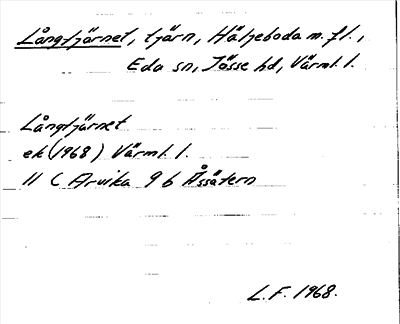 Långtjärnet, tjärn, Häljeboda m. fl.,
Eda sn, Jösse hd, Värml. l.
Långtjärnet
ek (1968) Värml. l.
11 C Arvika 9 b Åssätern
L.F. 1968.